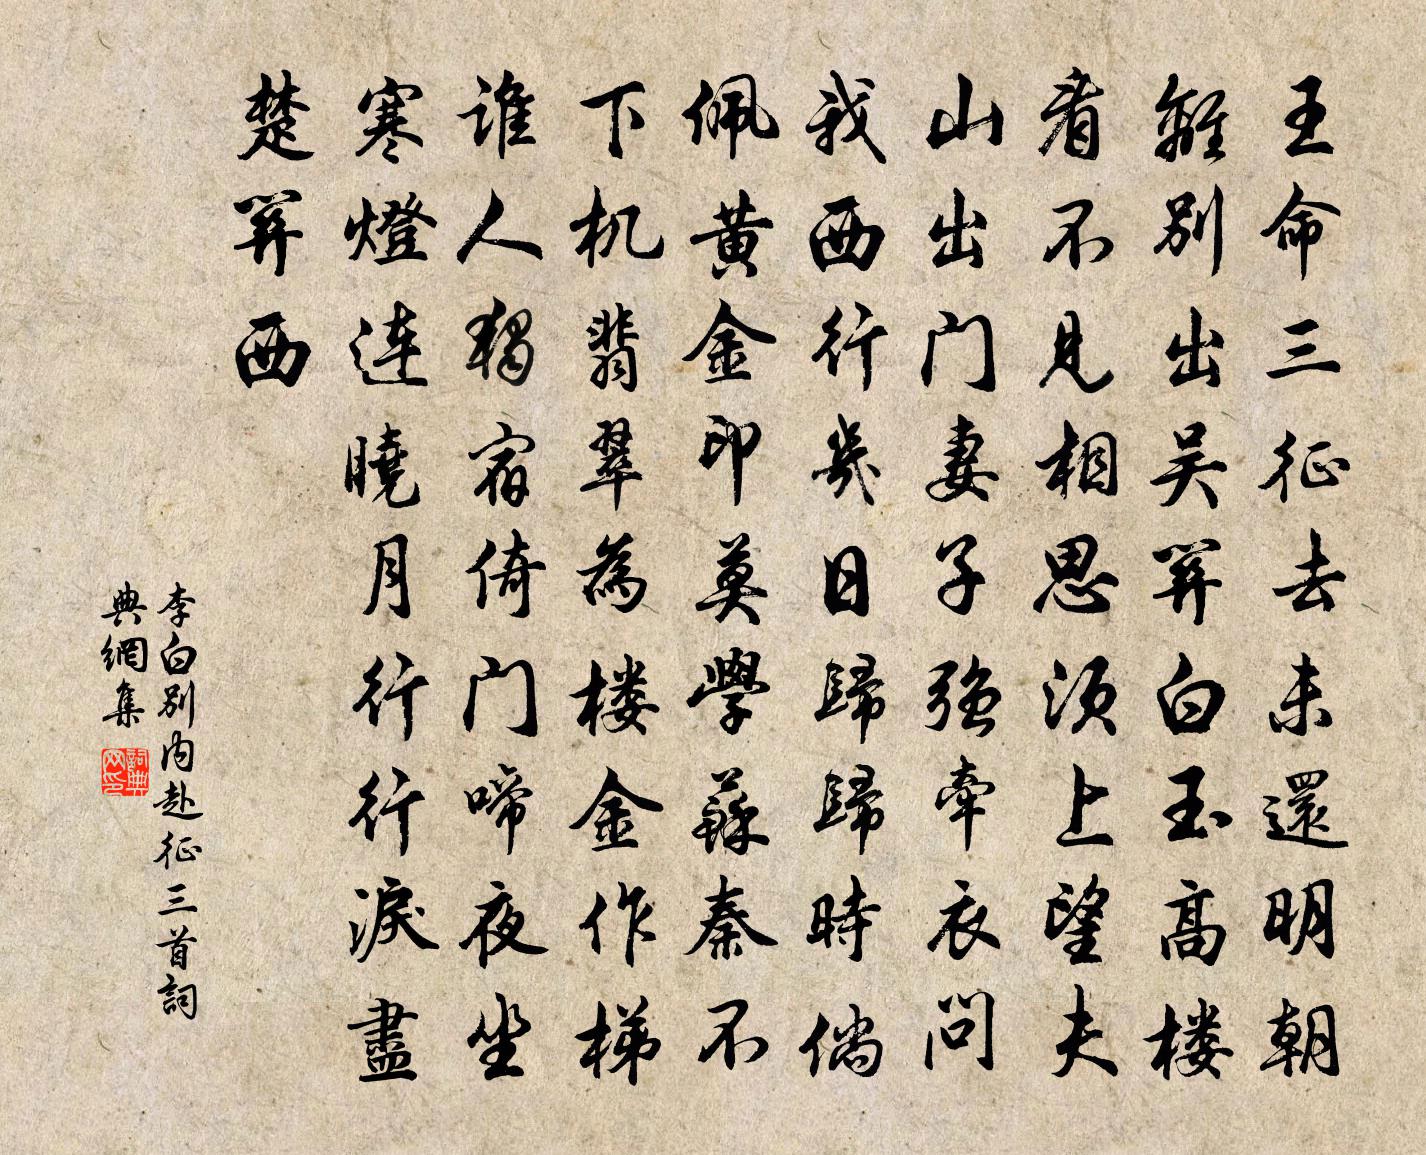 王命三征去未還明朝
離别出吴關白玉高楼
看不見相思須上望夫
山出门妻子强牽衣问
我西行幾日歸歸時倘
佩黄金印莫學蘇秦不
下机翡翠為楼金作梯
谁人獨宿倚门啼夜坐
寒燈連曉月行行淚盡
楚關西
李白别内赴征三首詞
典網集
詞典网印